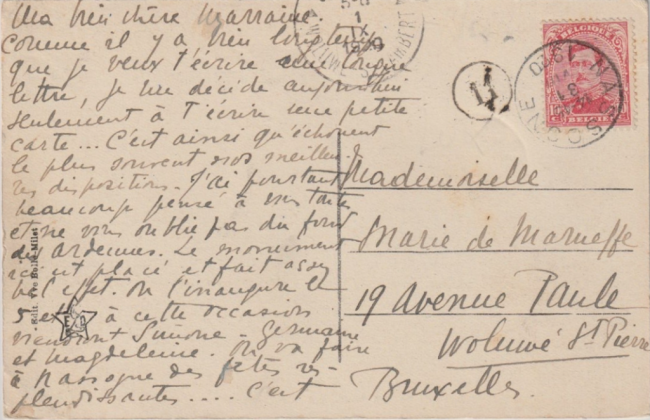 Ma bien chère Marraine.
Comme il y a bien longtemps
que je veux t'écrire une longue
lettre, je me décide aujourd'hui
seulement à t'écrire une petite
carte... C'est ainsi qu'échouent
le plus souvent nos meilleu-
res dispositions. J'ai pourtant
beaucoup pensé à mes tantes
et ne vous oublie pas du fond
des Ardennes. Le monument
est placé et fait assez
bel effet. On l'inaugure le
5 à cette occasion
viendront Simone - Germaine
et Magdeleine. On va faire
à Nassogne des fêtes res-
plendissantes.... C'est
Edit. Vve Bolle-Milet
1
1920
BELGIQUE
BELGIE
NASSOGNE
1920
11
Mademoiselle
Marie de Marneffe
19 Avenue Paule
Woluwé St Pierre
Bruxelles.